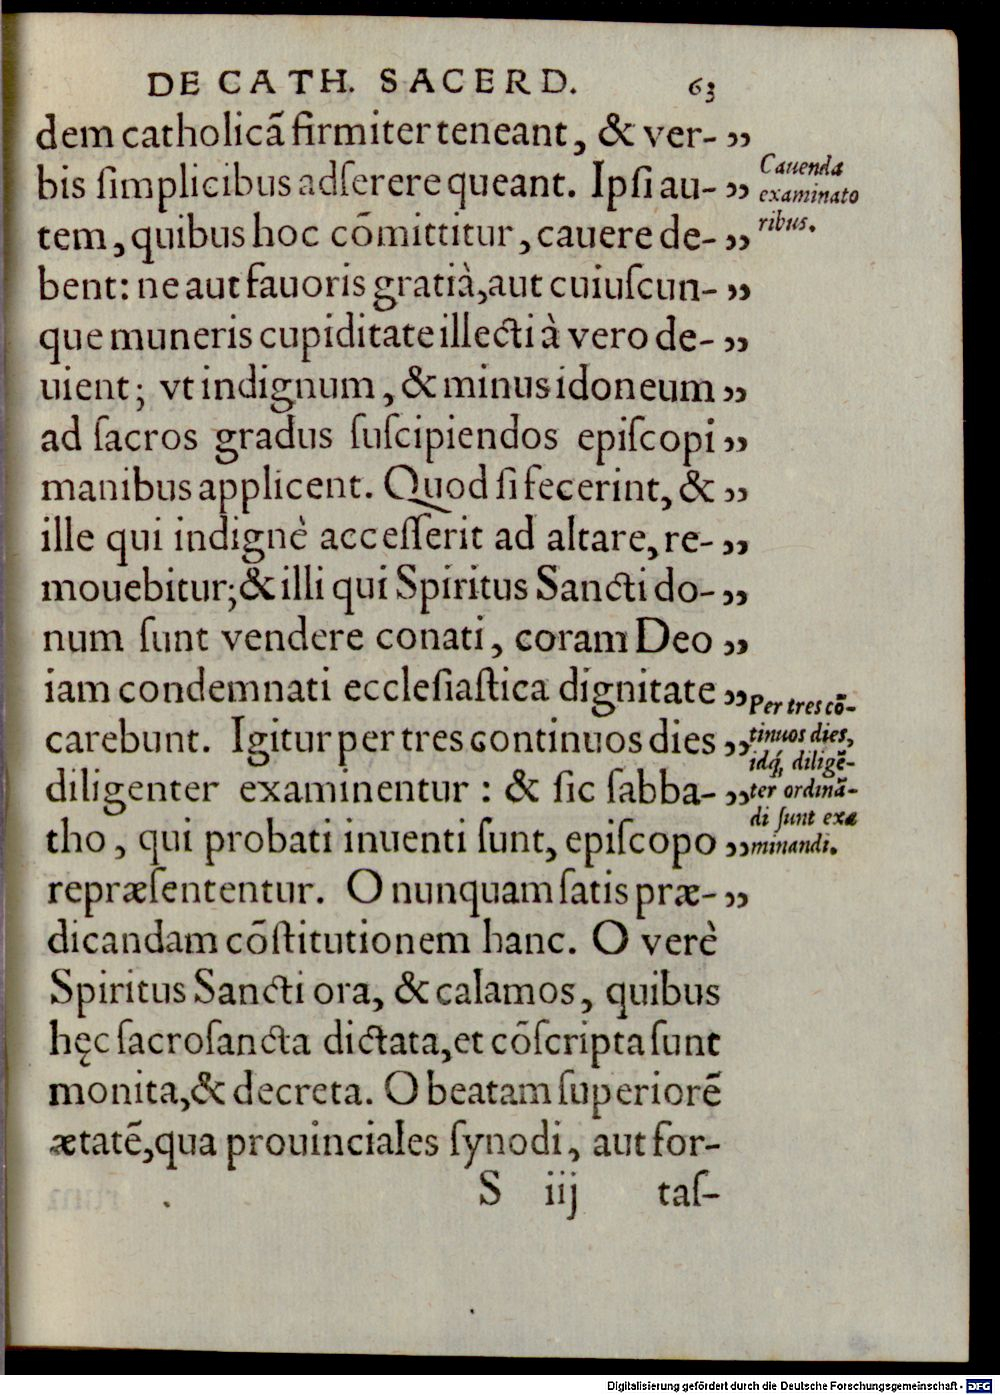 DE CATH. SACERD. 63
dem catholicã firmiter teneant, & ver- ”
bis ſimplicibus adſerere queant. Ipſi au- ”
tem, quibus hoc cõmittitur, cauere de- ”
bent: ne aut fauoris gratià, aut cuiuſcun- ”
que muneris cupiditate illecti à vero de- ”
uient; vt indignum, & minus idoneum ”
ad ſacros gradus ſuſcipiendos epiſcopi ”
manibus applicent. Quod ſi fecerint, & ”
ille qui indignè acceſſerit ad altare, re- ”
mouebitur; & illi qui Spiritus Sancti do- ”
num ſunt vendere conati, coram Deo ”
iam condemnati eccleſiaſtica dignitate ”
carebunt. Igitur per tres continuos dies ”
diligenter examinentur : & ſic ſabba- ”
tho, qui probati inuenti ſunt, epiſcopo ”
repræſententur. O nunquam ſatis præ- ”
dicandam cõſtitutionem hanc. O verè
Spiritus Sancti ora, & calamos, quibus
hęc ſacroſancta dictata, et cõſcripta ſunt
monita, & decreta. O beatam ſuperiorẽ
ætatẽ, qua prouinciales ſynodi, aut for-
S iij taſ-
Cauenda
examinato
ribus.
Per tres cõ-
tinuos dies,
idq́, diligẽ-
ter ordinã-
di ſunt exa
minandi.
Digitalisierung gefördert durch die Deutsche Forschungsgemeinschaft - DFG